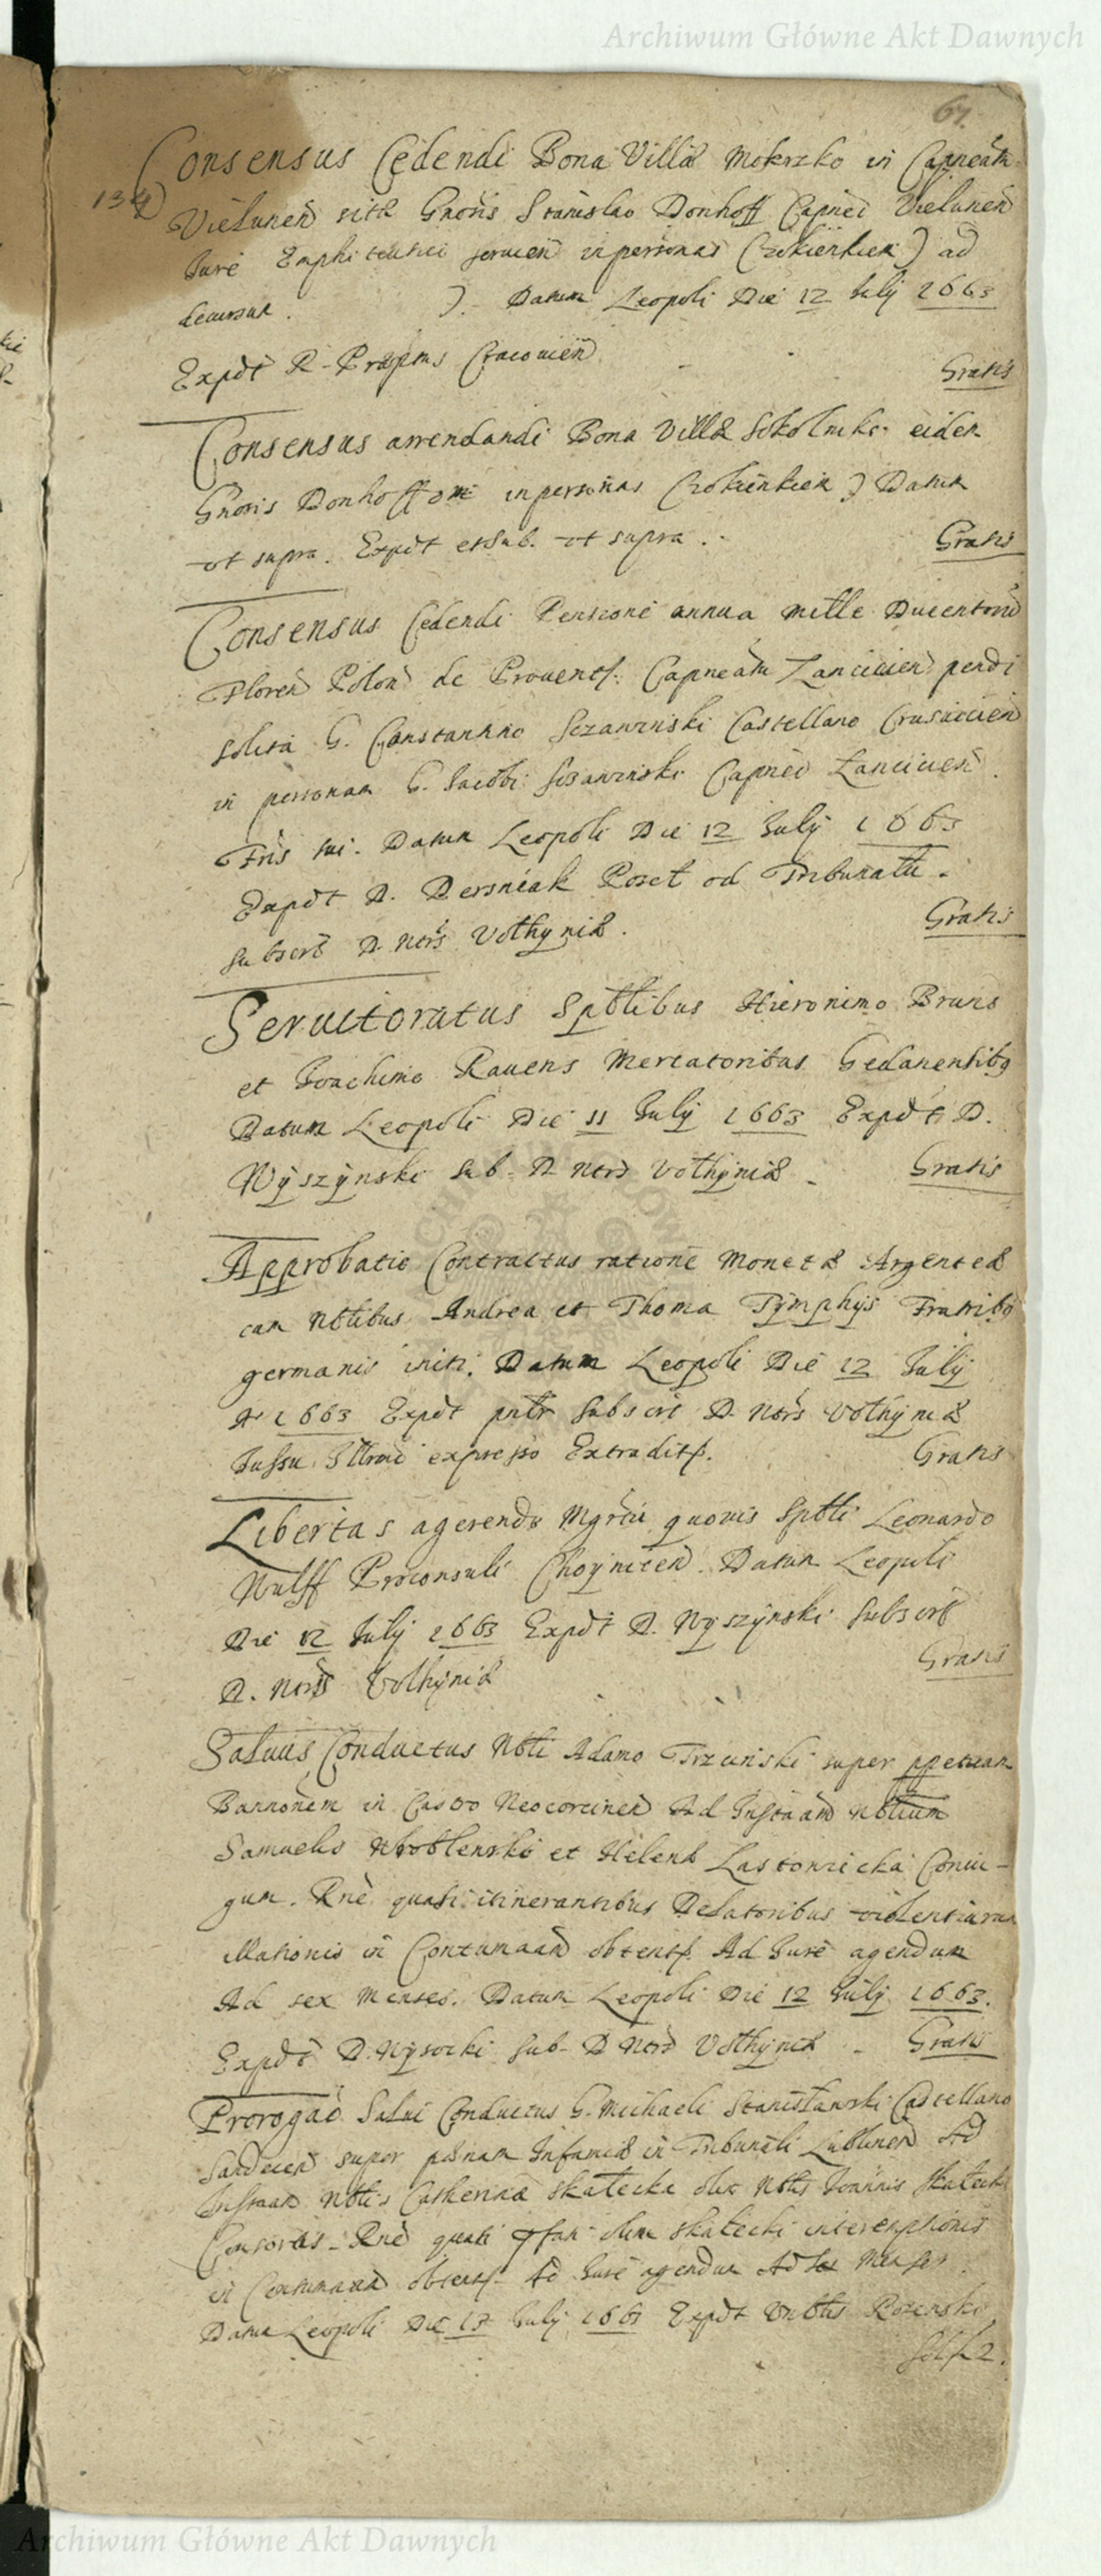 Archiwum Główne Akt Dawnych
67.
Consensus Cedendi Bona Villæ Mokrzko in Capneatu
134)
Vielunen sita Gnosis Stanislao Donhoff Capneo Vielunen
Jure Emphiteutici seruien in personas Czokienkien) ad
decursum . ). Datum Leopoli Die 12 July 1663
Expdt R. Præptus Cracouien
Gratis
Consensus arrendandi Bona Villæ Sokolniki eidem
Gnosis Donhoff in personas Czokienkien) Datum
ut supra. Expdt et Sub. ut supra .
Gratis
Consensus Cedendi Pensione annua mille Ducentoru
Floren Polon de Prouent. Capneatu Lancicien pendi
solita G. Constantino Sczawinski Castellano Crusuicien
in personam G. Jacobi Sczawinski Capnei Lancicien.
Fris sui. Datum Leopoli Die 12 July 1663
Expdt D. Dersniak Poset od Tribunatu.
Subscrb D. Notrs Volhyniæ.
Gratis
Seruitoratus Sptlibus Hieronimo Bruns
et Joachimo Rauens Mercatoribus Gedanensibg
Datum Leopoli Die 11 July 1663 Expdt D.
Wyszynski Sub. D. Notrs Volhyniæ .
Gratis
Approbatio Contractus ratione Monetæ Argenteæ
cum Nbtibus Andrea et Thoma Tymphys Fratribg
germanis initi. Datum Leopoli Die 12 July
Ao 1663 Expdt pntr Subscrb D. Notrs Volhyniæ
Jussu Illmi expresso Extradit.
Gratis
Libertas agerendi Mgrtu quouis Sptli Leonardo
Wulff Proconsuli Choynicen. Datum Leopoli
Die 12 July 1663 Expdt D. Wyszynski Subscrb
D. Notrs Volhyniæ
Gratis
Saluus Conductus Nbli Adamo Trzcinski super ppetuam
Bannonem in Castro Neocorcinen Ad Instaam Nbtium
Samuelis Wroblewski et Helenæ Lastowiecka Coniu-
gum. Rne quasi itinerantibus Delatoribus violentiarum
illationis in Contumaam obtent. Ad Jure agendum
Ad sex Menses. Datum Leopoli Die 12 July 1663.
Expdt D. Wysocki Sub. D Notrs Volhyniæ .
Gratis
Prorogao Salui Conductus G. Michaeli Stanisławski Castellano
Sandecen super pænam Infamiæ in Tribunali Lublinen Ad
Instaam Nbtis Catherina Skatecka olim Nbtis Joannis Skatecki
Consortis. Rne quasi olim Skatecki interemptionis
in Contumaam obtent. Ad Jure agendum Ad sex Menses
Datum Leopoli Die 13 July 1663 Expdt Rozenski
Archiwum Główne Akt Dawnych